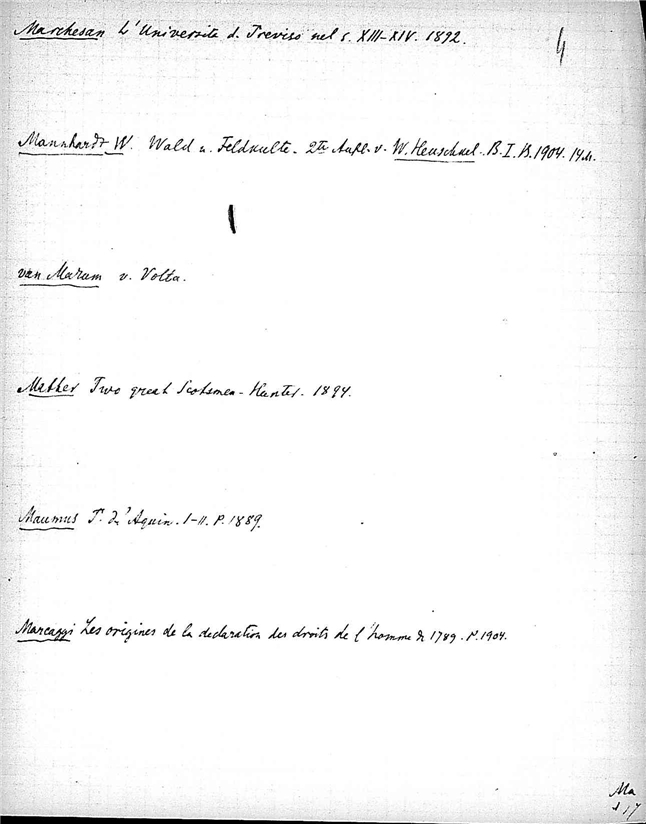 Marchesan L'Universita d. Treviso nel s. XIII-XIV. 1892.
4
Mannhardt W. Wald u. Feldkulte. 2te Aufl. v. W. Heuschkel. B. I. B. 1904. 14 M.
van Marum v. Volta.
Mather Two great Scotsmen - Hunter. 1894.
Maumus T. d'Aquin. I-II. P. 1889.
Marcaggi Les origines de la declaration des droits de l'homme de 1789. P. 1904.
Ma
17